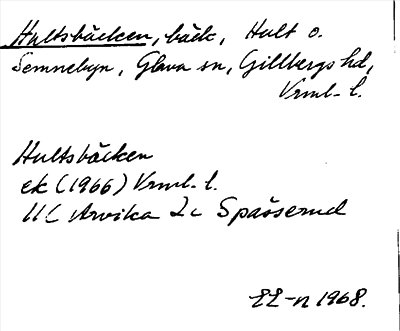 Hultsbäcken, bäck, Hult o.
Semnebyn, Glava sn, Gillbergs hd,
Vrml. l.
Hultsbäcken
ek (1966) Vrml. l.
11C Arvika 2c Spässerud
EE-n 1968.